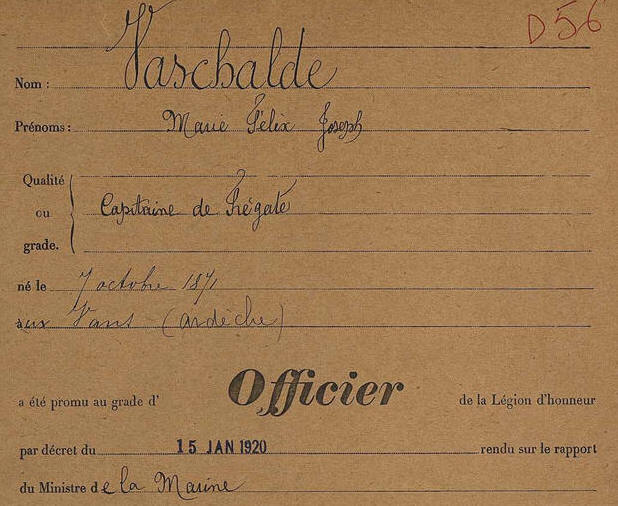 D56
Nom : Vaschalde
Prénoms : Marie Félix Joseph
Qualité
ou Capitaine de Frégate
grade.
né le 7 octobre 1871
aux Vans (Ardèche)
a été promu au grade d' Officier de la Légion d'honneur
par décret du 15 JAN 1920 rendu sur le rapport
du Ministre de la Marine